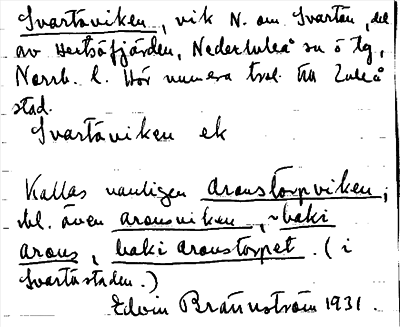 Svartåviken, vik N. om Svartön, del
av Hertsöfjärden, Nederluleå sn ö tg,
Norrb. l. Hör numera trol. till Luleå
stad.
Svartåviken ek
Kallas vanligen aronstorpviken;
bl. även aronsviken, ~ baki
arons, baki aronstorpet. (i
Svartåstaden.)
Edvin Brännström 1931.